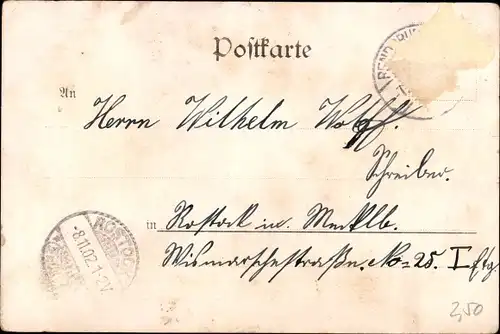 Postkarte
RENDSBURG
An
Herrn Wilhelm Wolff.
Schreiber.
in Rostock in Mecklb.
Wismarschestraße. No = 25. I Etg
ROSTOCK
-8.11.02.1-2V
2,50